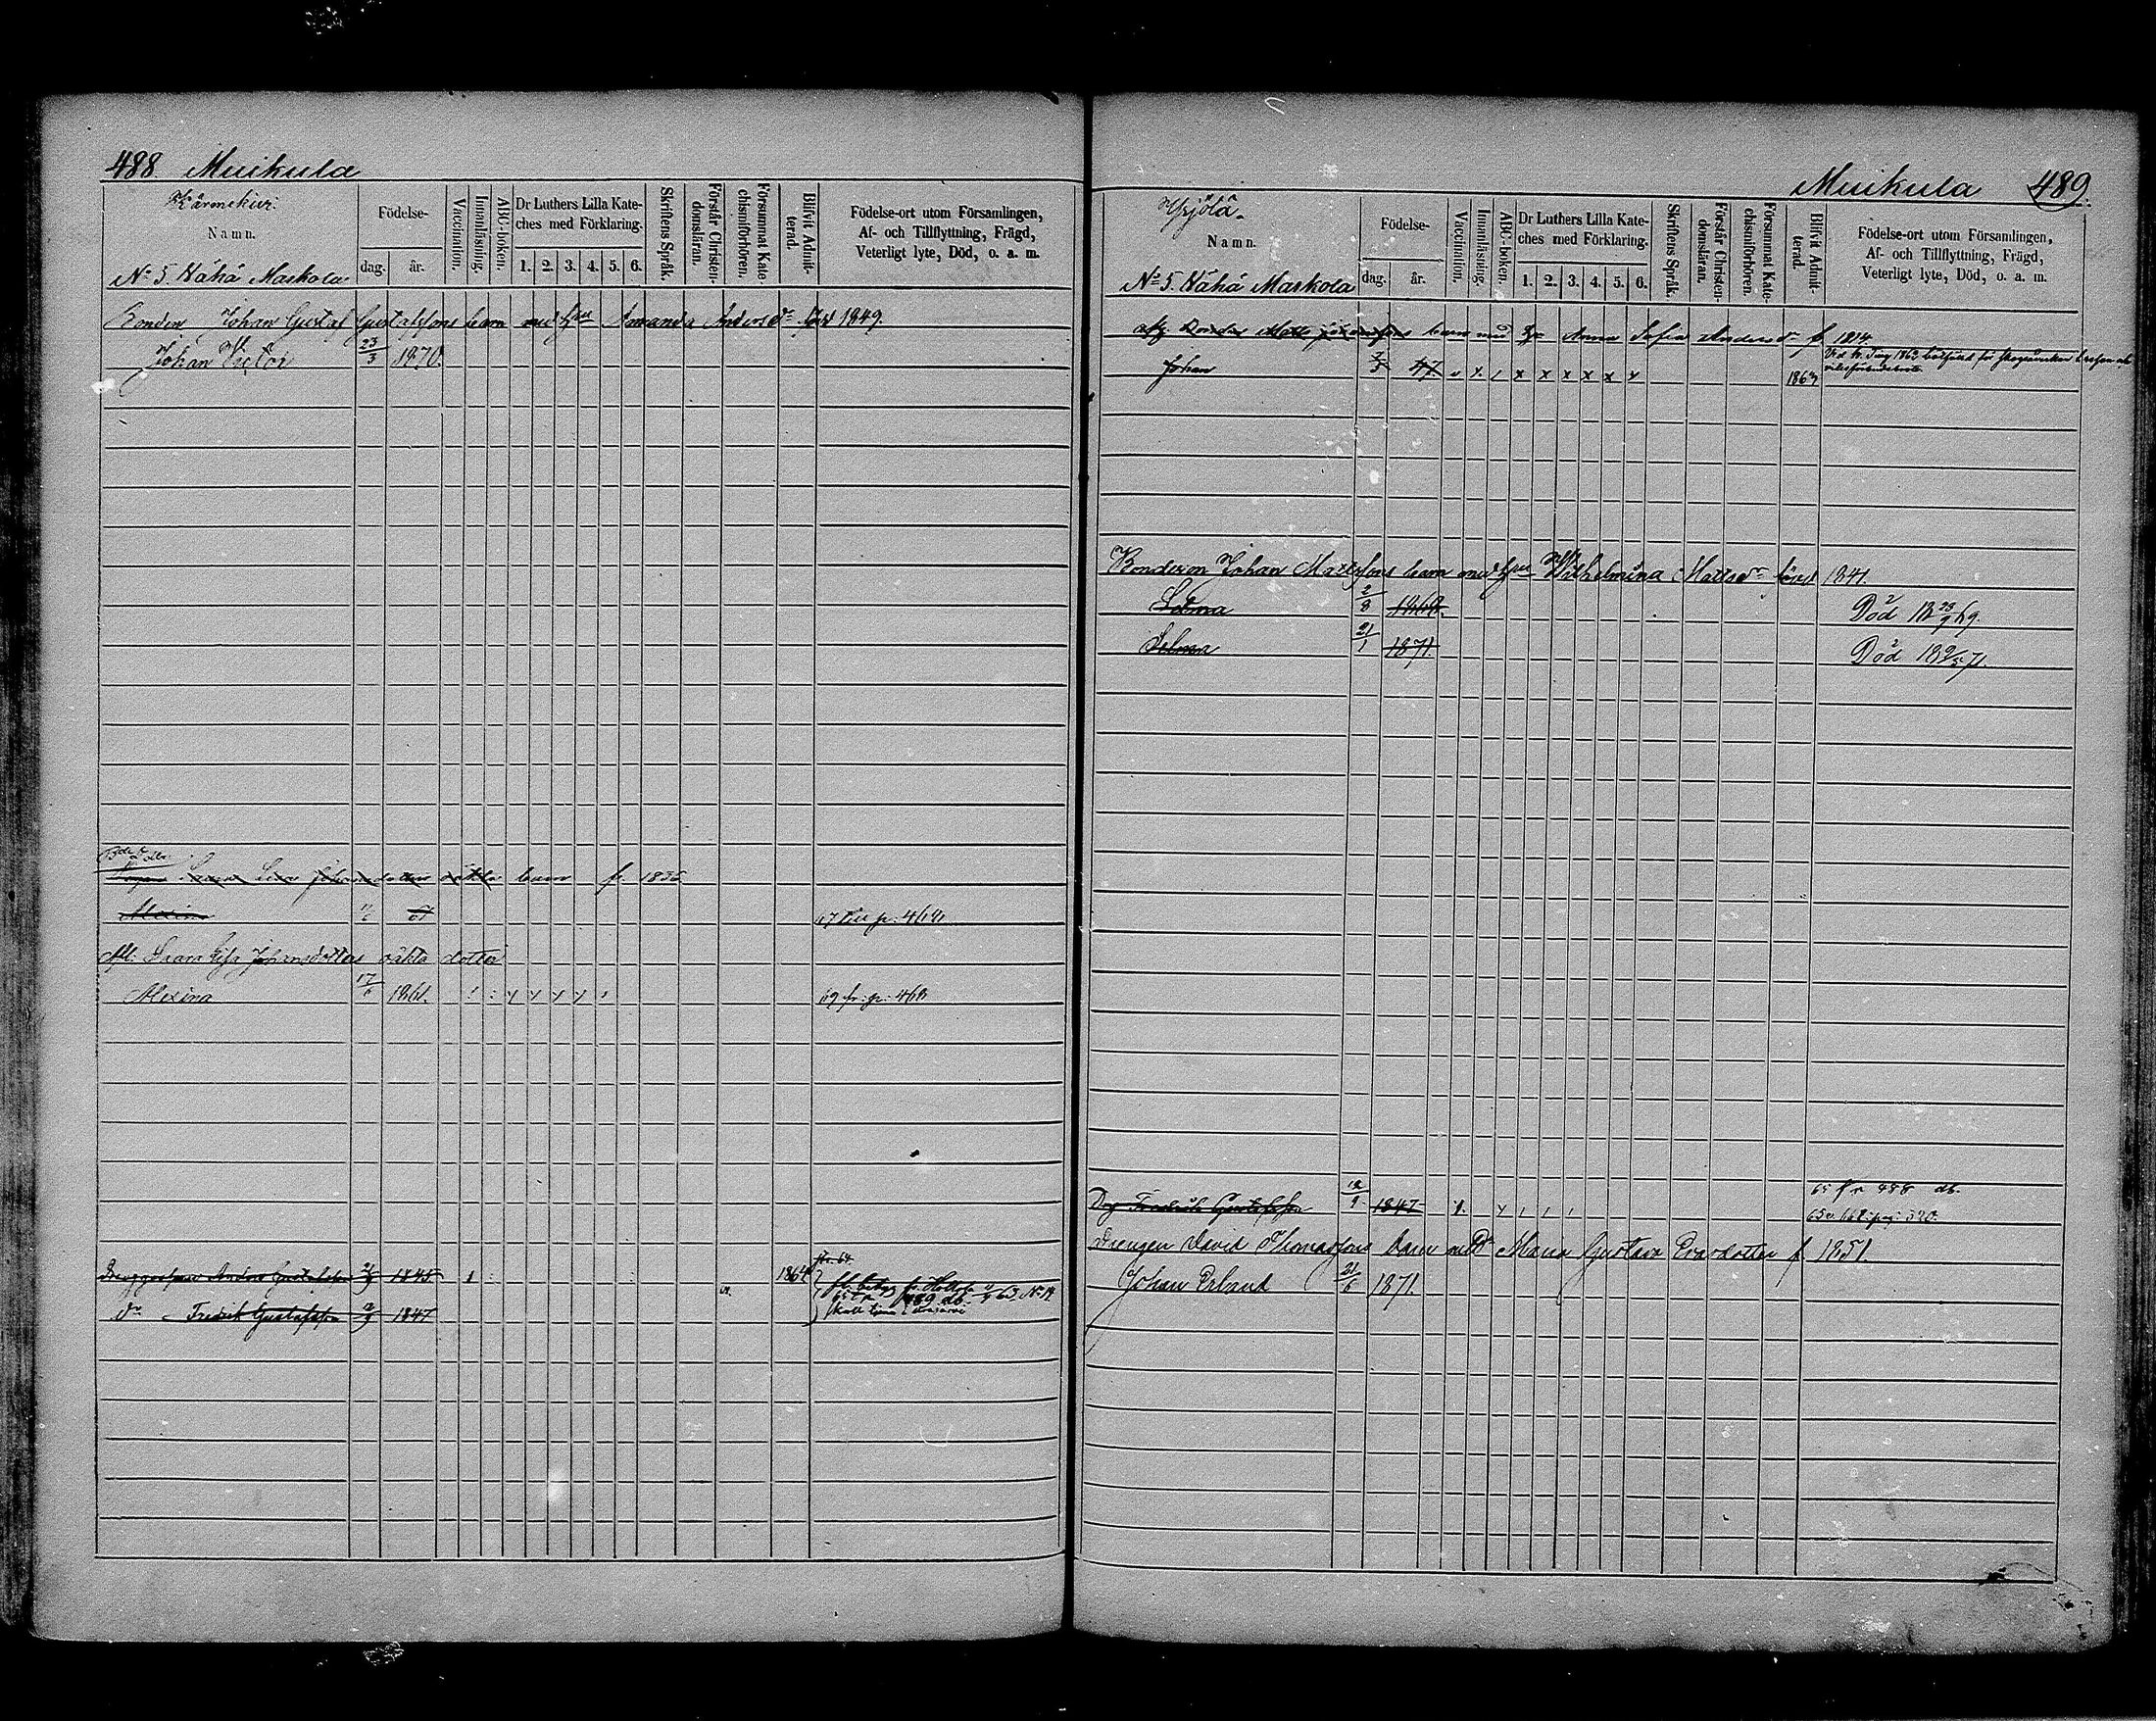 488. Muikula
Kärmekivi
Namn.
N:o 5. Wähä Maskola
Födelse-
dag. år.
Vaccination.
Innanläsning.
ABC-boken.
Dr Luthers Lilla Kate-
ches med Förklaring.
1. 2. 3. 4. 5. 6.
Skriftens Språk.
Förstår Christen-
domsläran.
Försummat Kate-
chismiförhören.
Blifvit Admit-
terad.
Födelse-ort utom Församlingen,
Af- och Tillflyttning, Frägd,
Veterligt lyte, Död, o. a. m.
Bonden Johan Gustaf Gustafssons barn med hu Amanda Andersdr född 1849.
Johan Victor 23/3 1870.
Johansdotters oäkta barn f. 1836
Alexina 17/6 61 67 till p: 468
Afl. Saara Lisa Johansdotters oäkta dotter
Alexina 17/6 1861. 69 fr: p: 468
Anders Gustafsson 1845 1864
Dr Fredrik Gustafsson 12/9 1847
Muikula 489.
Yrjölä.
Namn.
N:o 5. Wähä Maskola
Födelse-
dag. år.
Vaccination.
Innanläsning.
ABC-boken.
Dr Luthers Lilla Kate-
ches med Förklaring.
1. 2. 3. 4. 5. 6.
Skriftens Språk.
Förstår Christen-
domsläran.
Försummat Kate-
chismiförhören.
Blifvit Admit-
terad.
Födelse-ort utom Församlingen,
Af- och Tillflyttning, Frägd,
Veterligt lyte, Död, o. a. m.
Bonden Matts barn med Anna Sofia Andersdr f 1814.
Johan 47. x x x x x x 1863
Bondeson Johan Mattssons barn med hu Wilhelmina Mattsdr född 1841.
Selma 2/8 1868. Död 18 28/9 69.
Selma 21/1 1871. Död 18 9/5 71.
65 fr 488 db.
Dr Fredrik Gustafsson 12/9 1847
Drengen David Thomassons barn med Maria Gustava Evasdotter f 1851.
Johan Erland 21/6 1871.